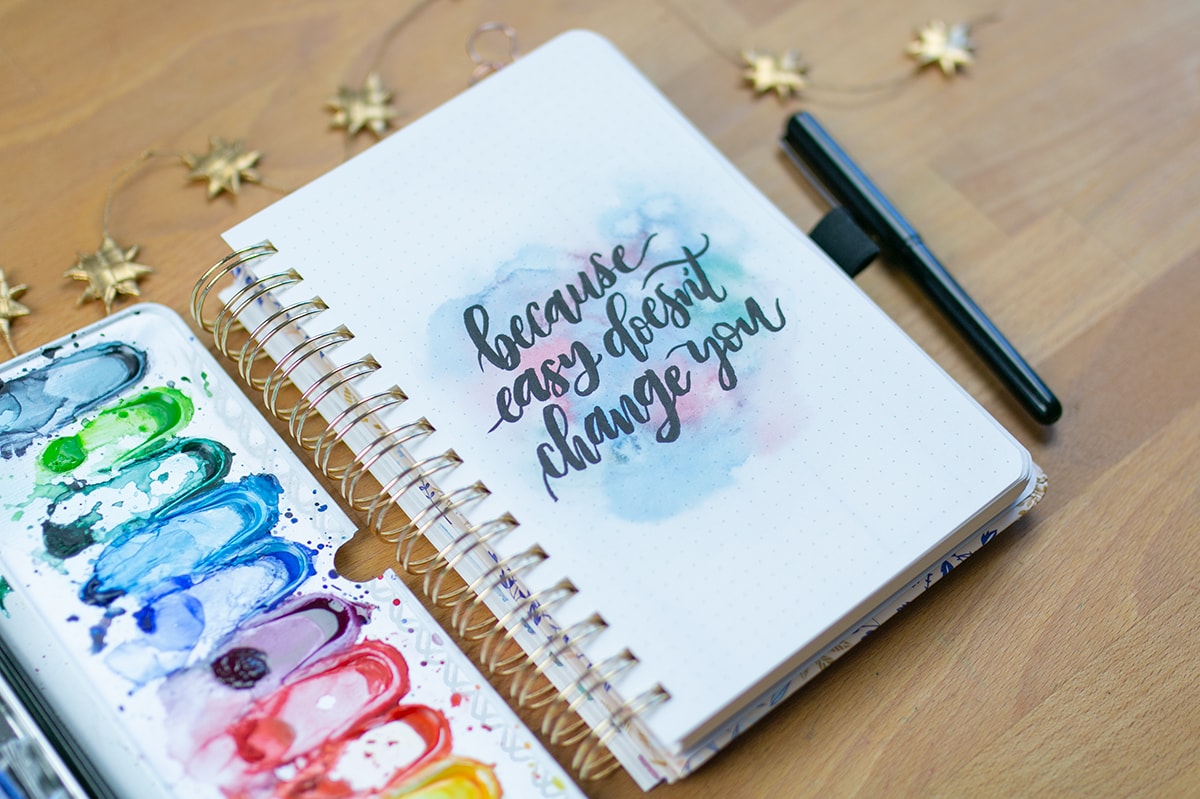 because
easy doesn't
change you